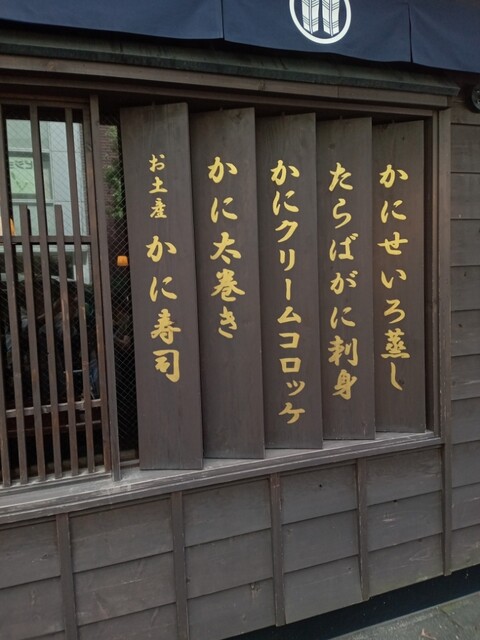 かにせいろ蒸し
たらばがに刺身
かにクリームコロッケ
かに太巻き
お土産 かに寿司